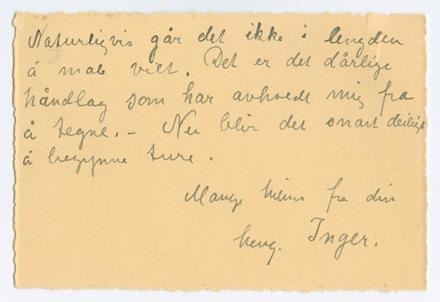 Naturligvis går det ikke i lengden
å male vilt. Det er det dårlige
håndlag som har avholdt mig fra
å tegne. - Nu blir det snart deilig
å begynne ture.
Mange hilsner fra din
heng. Inger.